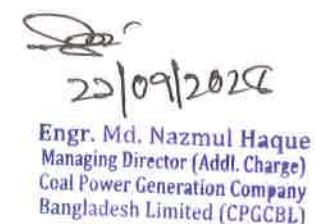 Engr. Md. Nazmul Haque
Managing Director (Addl. Charge)
Coal Power Generation Company
Bangladesh Limited (CPGCBL)